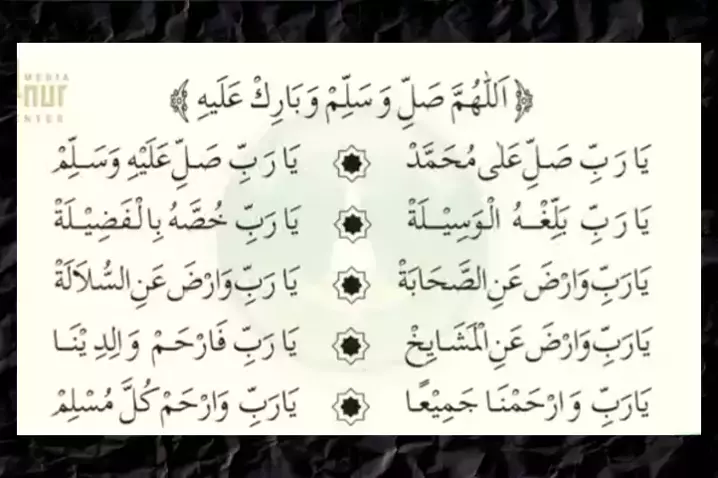 MEDIA
-nur
ENTER
﴿ اَللّٰهُمَّ صَلِّ وَسَلِّمْ وَبَارِكْ عَلَيهِ ﴾
يَا رَبِّ صَلِّ عَلٰى مُحَمَّدْ ۞ يَا رَبِّ صَلِّ عَلَيْهِ وَسَلِّمْ
يَا رَبِّ بَلِّغْهُ الْوَسِيْلَةْ ۞ يَا رَبِّ خُصَّهُ بِالْفَضِيْلَةْ
يَارَبِّ وَارْضَ عَنِ الصَّحَابَةْ ۞ يَا رَبِّ وَارْضَ عَنِ السُّلاَلَةْ
يَارَبِّ وَارْضَ عَنِ الْمَشَايِخْ ۞ يَا رَبِّ فَارْحَمْ وَالِدِيْنَا
يَارَبِّ وَارْحَمْنَا جَمِيْعًا ۞ يَارَبِّ وَارْحَمْ كُلَّ مُسْلِمْ